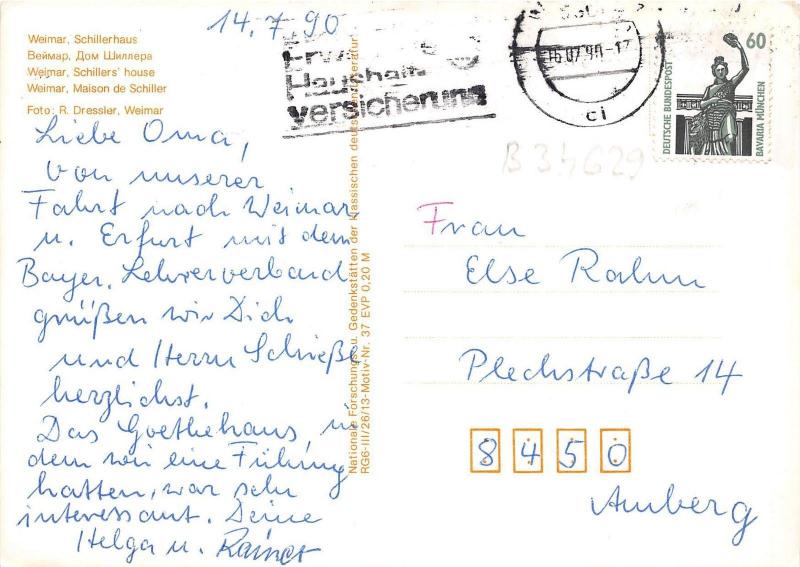 14.7.90
Weimar, Schillerhaus
Веймар, Дом Шиллера
Weimar, Schillers' house
Weimar, Maison de Schiller
Foto: R. Dressler, Weimar
Liebe Oma,
von unserer
Fahrt nach Weimar
u. Erfurt mit dem
Bayer. Lehrerverband
grüßen wir Dich
und Herrn Schieße
herzlichst.
Das Goethehaus, in
dem wir eine Führung
hatten, war sehr
interessant. Deine
Helga u. Rainer
Nationale Forschungs- u. Gedenkstätten der klassischen deutschen Literatur
RG6-III/26/13-Motiv-Nr. 37 EVP 0,20 M
Haushalt
versicherung
16.07.90-17
ci
60
DEUTSCHE BUNDESPOST
BAVARIA MÜNCHEN
B 34629
Frau
Else Rahm
Plechstraße 14
8450
Amberg